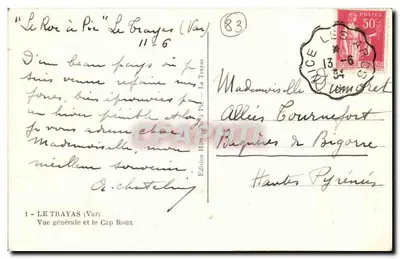 "Le Roc à Pic" Le Trayas (Var)
11-6
D'un beau pays où je
suis venue refaire mes
forces, bien éprouvées par
un hiver pénible et long
je vous adresse chère
Mademoiselle mon
meilleur souvenir.
1 - LE TRAYAS (Var)
Vue générale et le Cap Roux
Edition
Le Trayas
83
POSTES
50c
NICE
13-6
34
Mademoiselle
Allées Tournefort
Bagnères de Bigorre
Hautes Pyrénées